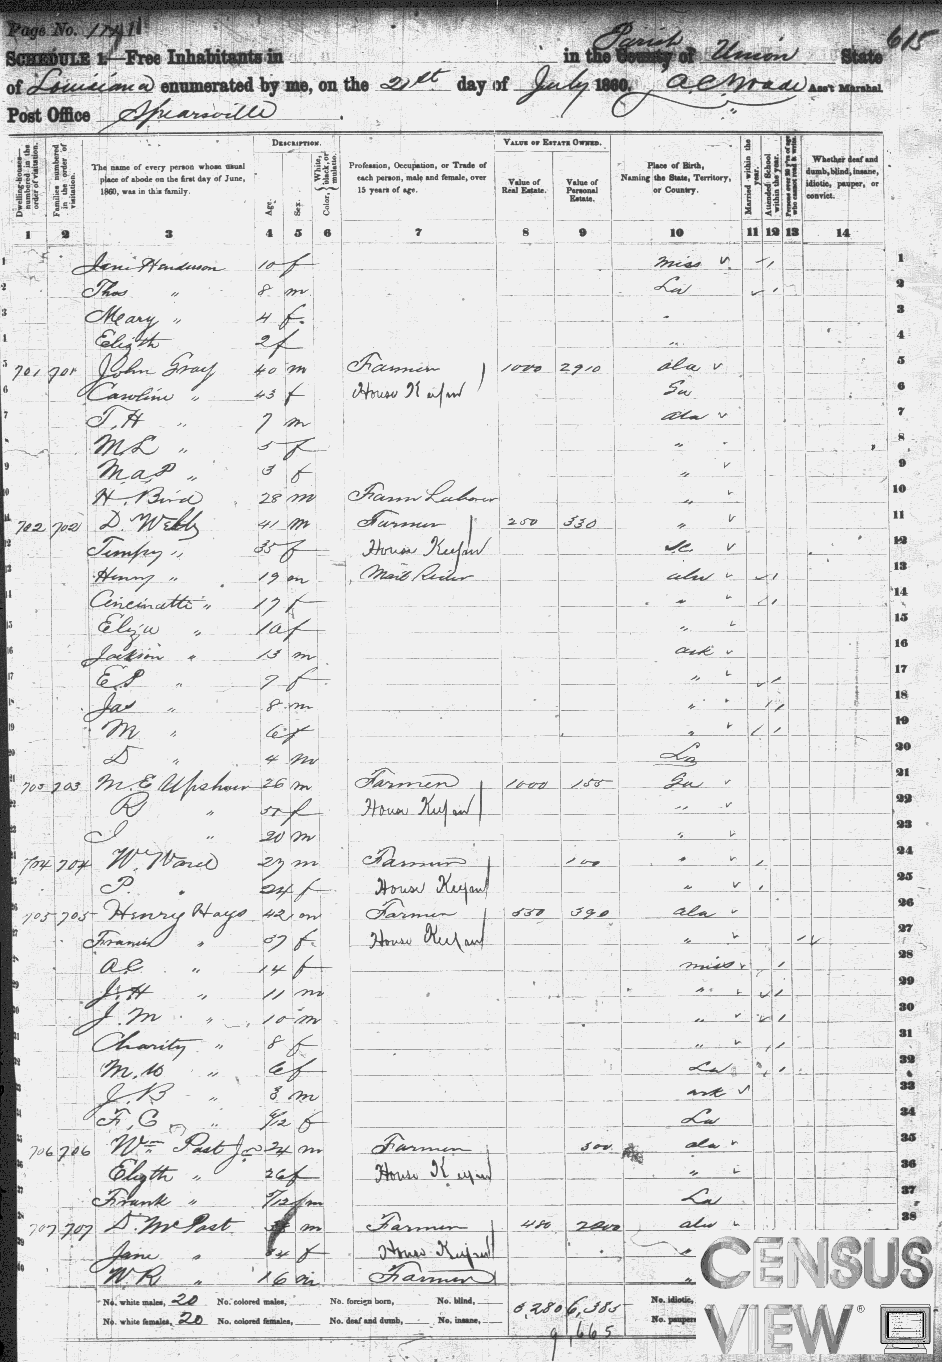 Page No.
615
SCHEDULE 1.—Free Inhabitants in in the Parish County of Union State
of Louisiana enumerated by me, on the 21st day of July 1860. A C Wade Ass't Marshal.
Post Office Spearsville
DESCRIPTION. VALUE OF ESTATE OWNED.
Dwelling-houses numbered in the order of visitation. Families numbered in the order of visitation. The name of every person whose usual place of abode on the first day of June, 1860, was in this family. Age. Sex. Color, White, black, or mulatto. Profession, Occupation, or Trade of each person, male and female, over 15 years of age. Value of Real Estate. Value of Personal Estate. Place of Birth, Naming the State, Territory, or Country. Married within the year. Attended School within the year. Persons over 20 y'rs of age who cannot read & write. Whether deaf and dumb, blind, insane, idiotic, pauper, or convict.
1 2 3 4 5 6 7 8 9 10 11 12 13 14
1 Jane Henderson 10 f Miss 1
2 Thos " 8 m La 2
3 Meary " 4 f 3
4 Elizth 2 f " 4
5 701 701 John Gray 40 m Farmer 1000 2910 ala 5
6 Caroline " 43 f House Keeper Ga 6
7 T. H " 7 m ala 7
8 M L " 5 f " 8
9 M a P " 3 f " 9
10 H. Bird 28 m Farm Laborer " 10
11 702 702 D. Webb 41 m Farmer 250 330 " 11
12 Tempy " 35 f House Keeper S.C. 12
13 Henry " 19 m Mail Rider ala 13
14 Cincinatti " 17 f " 14
15 Eliza " f " 15
16 Jackson " 13 m ark 16
17 E P " 9 f " 17
18 Jas " 8 m " 18
19 M " 6 f " 19
20 D " 4 m La 20
21 703 703 M. E Upshaw 26 m Farmer 1000 155 Ga 21
22 R " f House Keeper " 22
23 J " 20 m " 23
24 704 704 W. Ward 27 m Farmer 100 " 24
25 P. " 24 f House Keeper " 25
26 705 705 Henry Hays 42 m Farmer 550 390 ala 26
27 Francis " 37 f House Keeper " 27
28 A C " 14 f miss 28
29 J. H " 11 m " 29
30 J. M " 10 m " 30
31 Charity " 8 f " 31
32 M. W " 6 f La 32
33 J. B " 3 m ark 33
34 F. C " f La 34
35 706 706 Wm Post Jr 24 m Farmer 300 ala 35
36 Elizth " 26 f House Keeper " 36
37 Frank " m La 37
38 707 707 D. Mc Post m Farmer 480 2000 ala 38
Jane " 34 f House Keeper "
40 W R " 16 m Farmer "
No. white males, 20 No. colored males, No. foreign born, No. blind, 3,280 6,385 No. idiotic,
No. white females, 20 No. colored females, No. deaf and dumb, No. insane, No. paupers
9,665
CENSUS
VIEW®